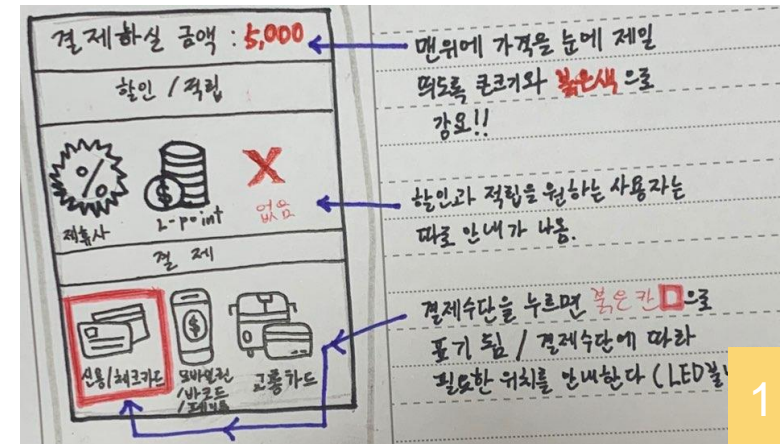 결제하실 금액 : 5,000
할인 / 적립
%
$
제휴사
L-point
X
없음
결 제
$
신용/체크카드
모바일칩
/바코드
교통카드
맨위에 가격을 눈에 제일
띄도록 큰크기와 붉은색으로
강요!!
할인과 적립을 원하는 사용자는
따로 안내가 나옴.
결제수단을 누르면 붉은 칸 으로
표기 됨 / 결제수단에 따라
필요한 위치를 안내한다 (LED
1